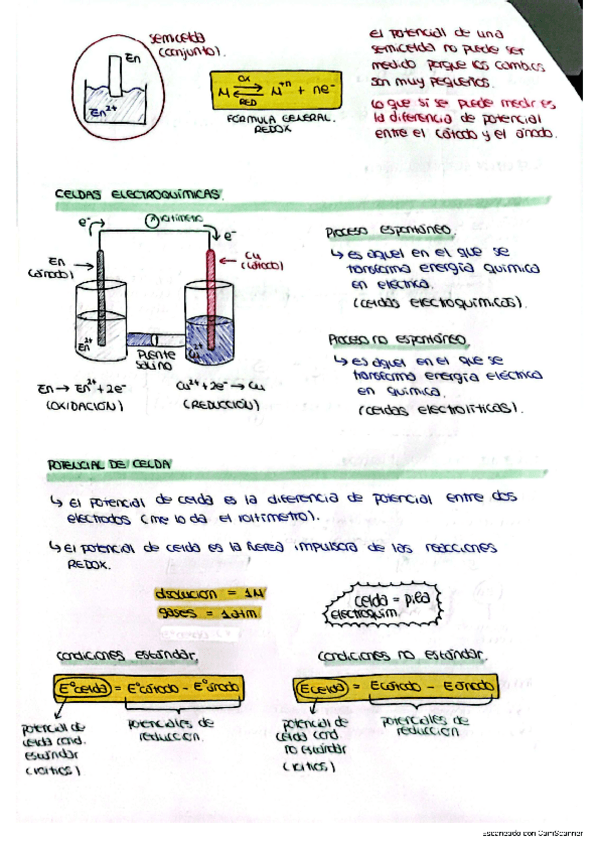 semicelda
(conjunto).
En
En²⁺
M ⇌ M⁺ⁿ + ne⁻
OX
RED
FÓRMULA GENERAL.
REDOX
el potencial de una
semicelda no puede ser
medido porque los cambios
son muy pequeños.
Lo que si se puede medir es
la diferencia de potencial
entre el cátodo y el ánodo.
CELDAS ELECTROQUÍMICAS.
e⁻
voltímetro
e⁻
En
(ánodo)
Cu
(cátodo)
En²⁺
Puente
salino
Cu²⁺
En → En²⁺ + 2e⁻
(OXIDACIÓN)
Cu²⁺ + 2e⁻ → Cu
(REDUCCIÓN)
Proceso espontáneo.
↳ es aquel en el que se
transforma energía química
en eléctrica.
(celdas electroquímicas).
Proceso no espontáneo.
↳ es aquel en el que se
transforma energía eléctrica
en química.
(celdas electrolíticas).
POTENCIAL DE CELDA
↳ el potencial de celda es la diferencia de potencial entre dos
electrodos (me lo da el voltímetro).
↳ el potencial de celda es la fuerza impulsora de las reacciones
REDOX.
disolución = 1M
gases = 1atm
celda = pila
electroquím.
condiciones estándar.
E°celda = E°cátodo - E°ánodo
potencial de
celda cond.
estándar
(voltios)
potenciales de
reducción.
condiciones no estándar.
Ecelda = Ecátodo - Eánodo
potencial de
celda cond.
no estándar
(voltios)
potenciales de
reducción
Escaneado con CamScanner